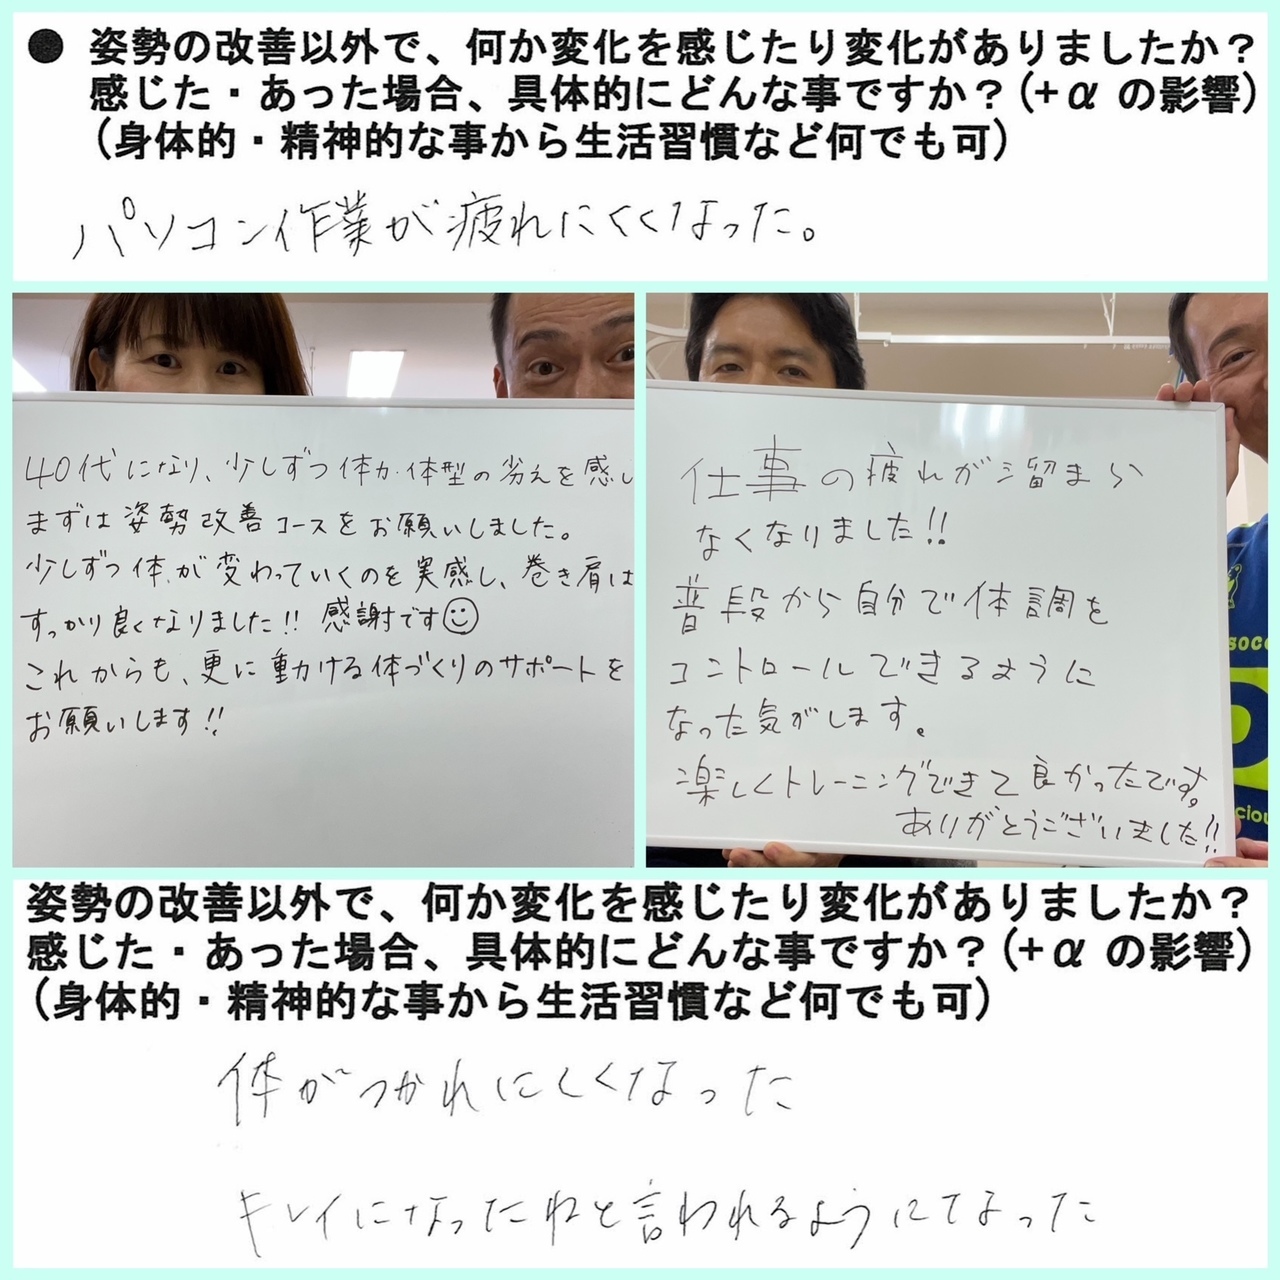 ● 姿勢の改善以外で、何か変化を感じたり変化がありましたか？
感じた・あった場合、具体的にどんな事ですか？（+α の影響）
（身体的・精神的な事から生活習慣など何でも可）
パソコン作業が疲れにくくなった。
40代になり、少しずつ体力・体型の劣えを感し
まずは姿勢改善コースをお願いしました。
少しずつ体が変わっていくのを実感し、巻き肩は
すっかり良くなりました!! 感謝です☺
これからも、更に動ける体づくりのサポートを
お願いします!!
仕事の疲れが溜まら
なくなりました!!
普段から自分で体調を
コントロールできるように
なった気がします。
楽しくトレーニングできて良かったです。
ありがとうございました!!
SOCC
ciou
姿勢の改善以外で、何か変化を感じたり変化がありましたか？
感じた・あった場合、具体的にどんな事ですか？（+α の影響）
（身体的・精神的な事から生活習慣など何でも可）
体がつかれにくくなった
キレイになったねと言われるようになった